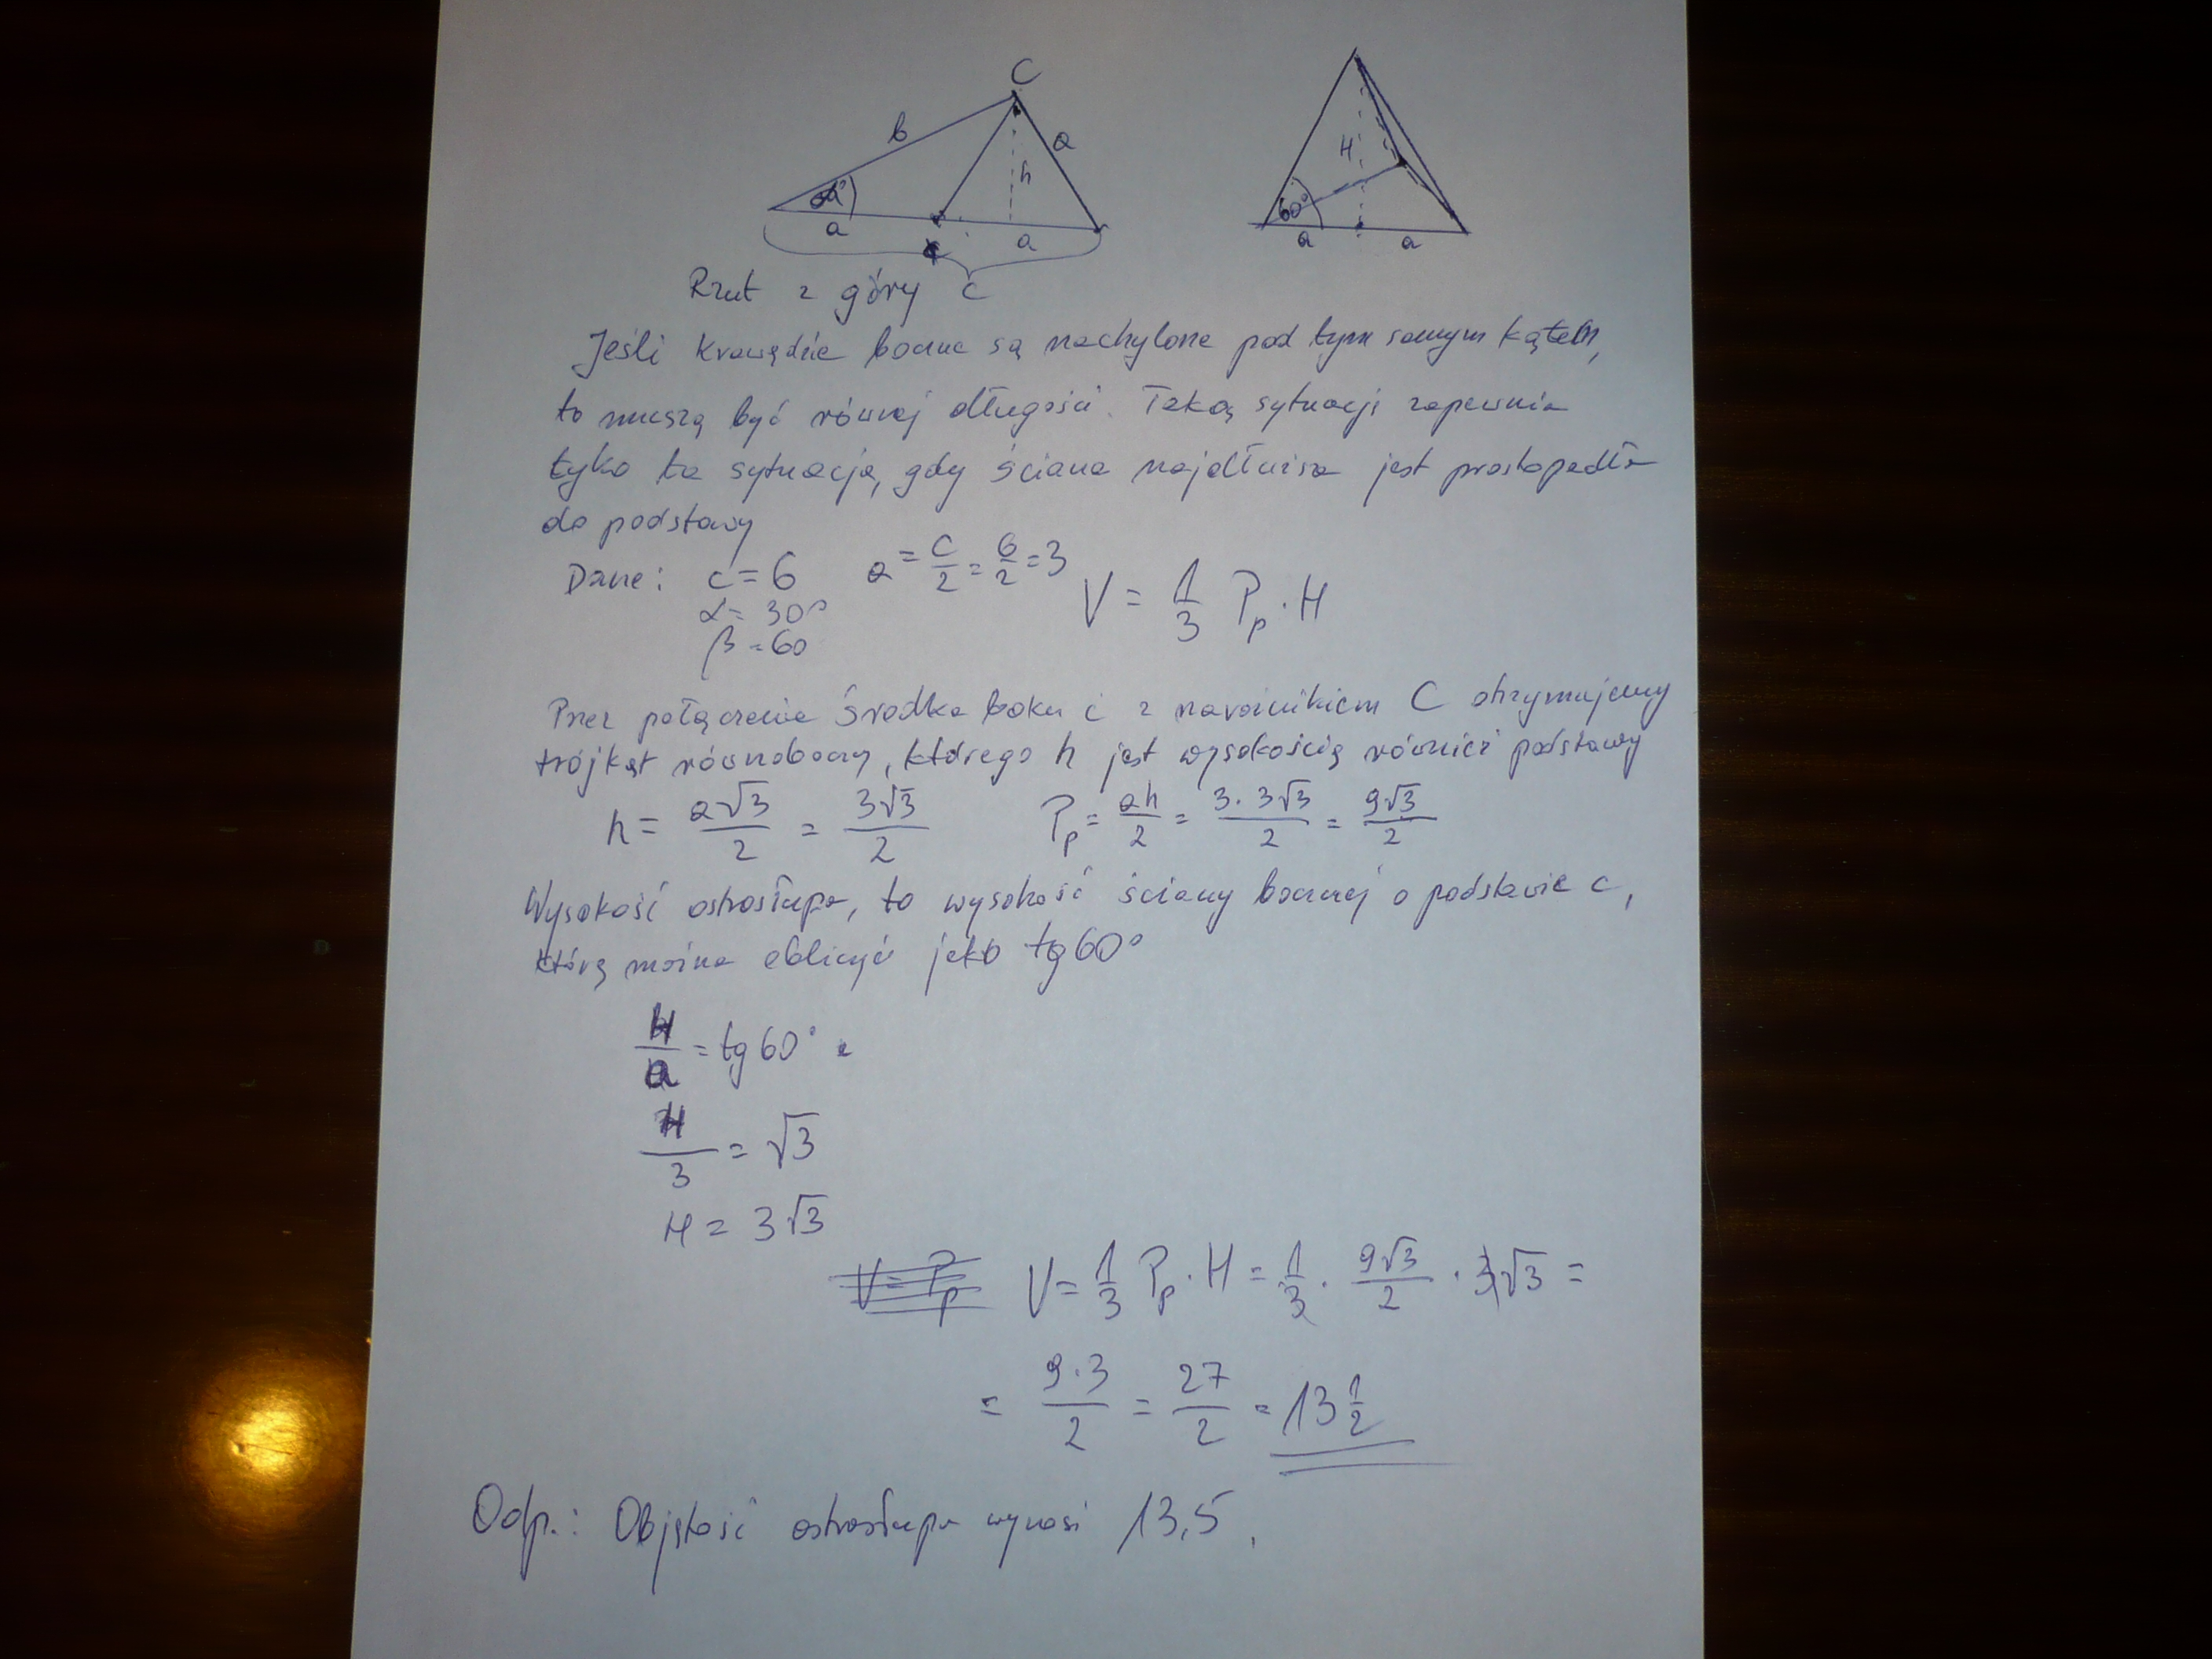 C
b a h
α
a a
c
Rzut z góry
H
60°
a a
Jeśli krawędzie boczne są nachylone pod tym samym kątem,
to muszą być równej długości. Taką sytuacji zapewnia
tyko ta sytuacja, gdy ściana najdłuższa jest prostopadła
do podstawy
Dane: c = 6 a = c/2 = 6/2 = 3 V = 1/3 Pp · H
α = 30°
β = 60
Przez połączenie środka boku c z narożnikiem C otrzymujemy
trójkąt równoboczny, którego h jest wysokością również podstawy
h = a√3/2 = 3√3/2 Pp = ah/2 = 3·3√3/2 = 9√3/2
Wysokość ostrosłupa, to wysokość ściany bocznej o podstawie c,
którą można obliczyć jako tg 60°
H/a = tg 60°
H/3 = √3
H = 3√3
V = Pp V = 1/3 Pp · H = 1/3 · 9√3/2 · 3√3 =
= 9·3/2 = 27/2 = 13 1/2
Odp.: Objętość ostrosłupa wynosi 13,5.